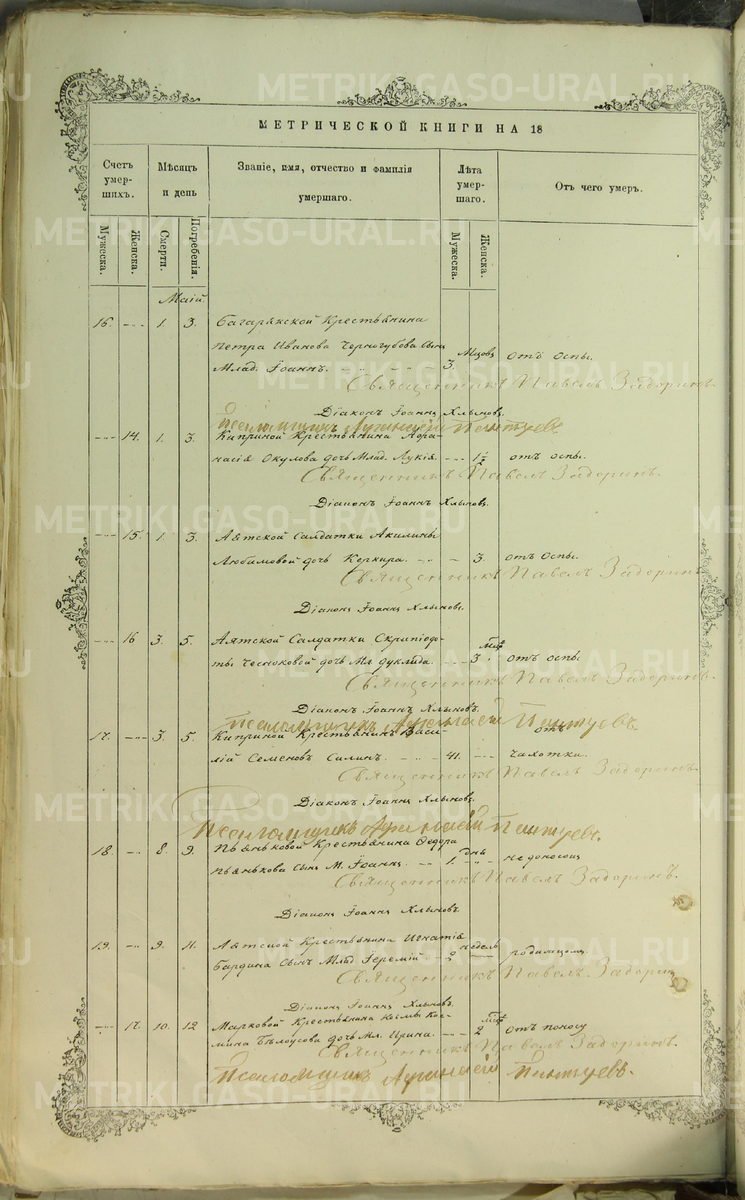 МЕТРИЧЕСКОЙ КНИГИ НА 18
Счетъ умер-шихъ.
Мѣсяцъ и день
Званіе, имя, отчество и фамилія умершаго.
Лѣта умер-шаго.
Отъ чего умеръ.
Мужеска.
Женска.
Смерти.
Погребенія.
Мужеска.
Женска.
Маій
16. 1. 3. Багарякской Крестьянина
Петра Иванова Черногубова Сынъ
Млад. Іоаннъ. 3. Мсцовъ отъ оспы.
Священникъ Павелъ Задоринъ.
Діаконъ Іоаннъ Хлыновъ.
Псаломщикъ
14. 1. 3. Киприной Крестьянина Аѳа-
насія Окулова дочь Млад. Лукія. 1½ отъ оспы.
Священникъ Павелъ Задоринъ.
Діаконъ Іоаннъ Хлыновъ.
15. 1. 3. Аятской Салдатки Акилины
Любимовой дочь Керкира. 3. отъ оспы.
Священникъ Павелъ Задоринъ
Діаконъ Іоаннъ Хлыновъ.
16 3. 5. Аятской Салдатки
Чесноковой дочь Мл. 3 отъ оспы
Священникъ Павелъ Задоринъ.
Діаконъ Іоаннъ Хлыновъ.
Псаломщикъ
17. 3. 5. Киприной Крестьянинъ Васи-
лій Семеновъ Силинъ. 41. отъ чахотки.
Священникъ Павелъ Задоринъ
Діаконъ Іоаннъ Хлыновъ.
Псаломщикъ
18. 8. 9. Пьянковой Крестьянина Ѳедора
Пьянкова Сынъ М. Іоаннъ. 1. день недоносокъ
Священникъ Павелъ Задоринъ.
Діаконъ Іоаннъ Хлыновъ.
19. 9. 11. Аятской Крестьянина Игнатія
Бардина Сынъ Млад Іеремій 2 недель родимцомъ
Священникъ Павелъ Задорин
Діаконъ Іоаннъ Хлыновъ.
17. 10. 12 Марковой Крестьянина Козмы Коз-
мина Бѣлоусова дочь Мл. Ирина. 2 отъ поносу
Священникъ Павелъ Задоринъ.
Псаломщикъ
METRIKI.GASO-URAL.RU